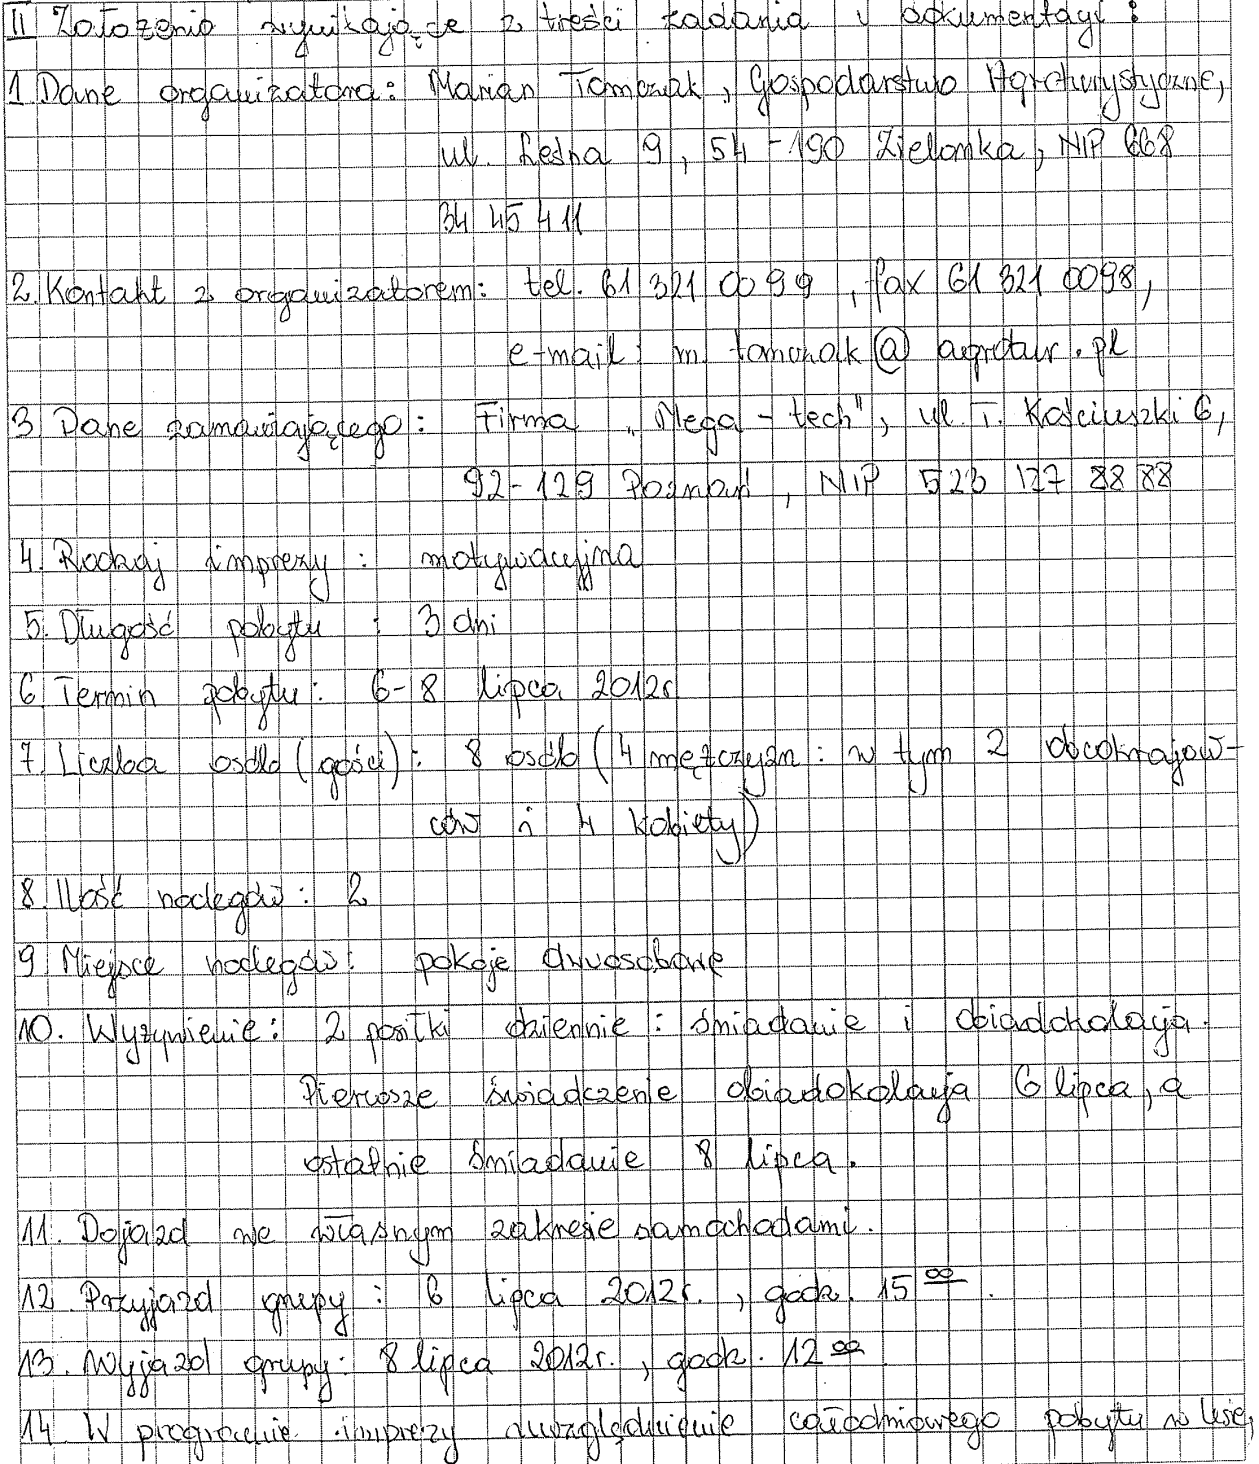 II Założenia wynikające z treści zadania i dokumentacji:
1. Dane organizatora: Marian Tomczak, Gospodarstwo Agroturystyczne,
ul. Leśna 9, 54-190 Zielonka, NIP 668
34 45 411
2. Kontakt z organizatorem: tel. 61 321 00 99, fax 61 321 0098,
e-mail: m.tomczak@agrotur.pl
3. Dane zamawiającego: Firma „Mega-tech", ul. T. Kościuszki 6,
92-129 Poznań, NIP 523 127 88 88
4. Rodzaj imprezy: motywacyjna
5. Długość pobytu: 3 dni
6. Termin pobytu: 6-8 lipca 2012r
7. Liczba osób (gości): 8 osób (4 mężczyzn: w tym 2 obcokrajow-
ców i 4 kobiety)
8. Ilość noclegów: 2
9. Miejsce noclegów: pokoje dwuosobowe
10. Wyżywienie: 2 posiłki dziennie: śniadanie i obiadokolacja.
Pierwsze świadczenie obiadokolacja 6 lipca, a
ostatnie śniadanie 8 lipca.
11. Dojazd we własnym zakresie samochodami.
12. Przyjazd grupy: 6 lipca 2012r., godz. 15⁰⁰.
13. Wyjazd grupy: 8 lipca 2012r., godz. 12⁰⁰
14. W programie imprezy uwzględnienie całodniowego pobytu w lesie,